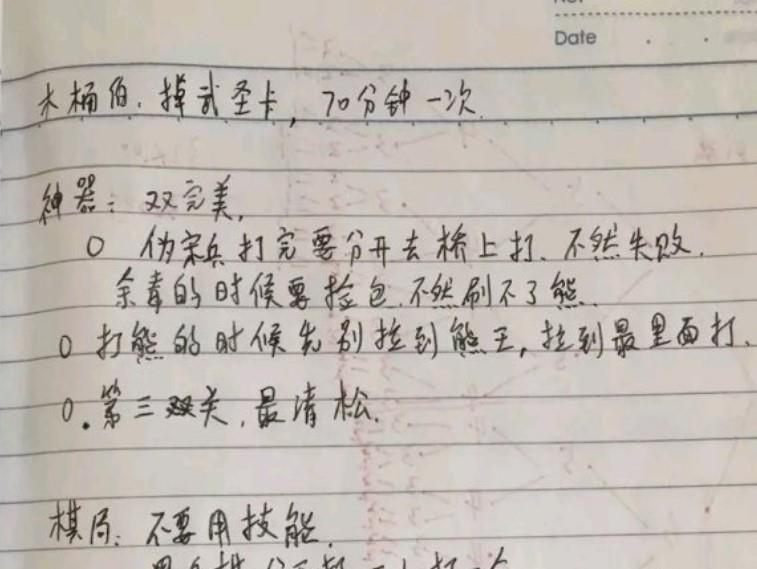 Date
木桶伯. 掉武圣卡, 70分钟一次.
神器: 双完美.
O 伪宋兵打完要分开去桥上打. 不然失败.
余毒的时候要捡包. 不然刷不了熊.
O 打熊的时候先别拉到熊王, 拉到最里面打.
O. 第三关, 最清松.
棋局: 不要用技能.